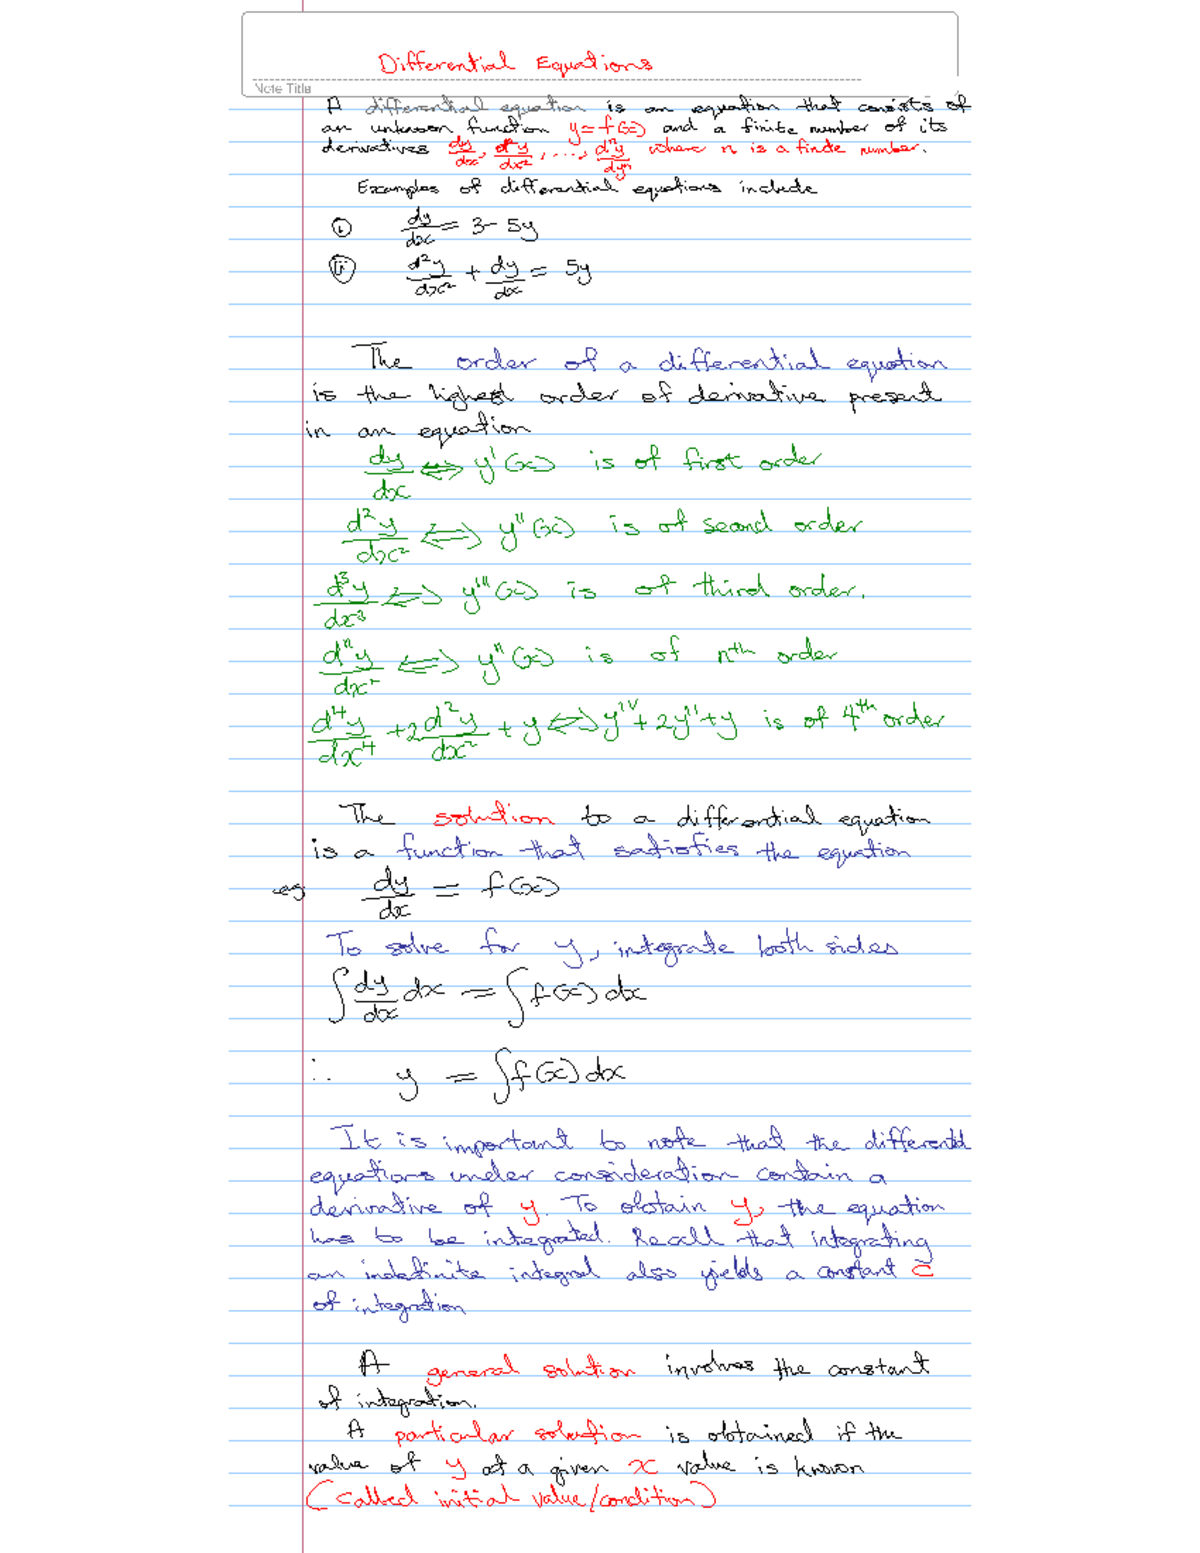 Differential Equations
Note Title
A differential equation is an equation that consists of
an unknown function y=f(x) and a finite number of its
derivatives dy/dx, d²y/dx², ..., dⁿy/dyⁿ where n is a finite number.
Examples of differential equations include
(i) dy/dx = 3-5y
(ii) d²y/dx² + dy/dx = 5y
The order of a differential equation
is the highest order of derivative present
in an equation
dy/dx ⇔ y'(x) is of first order
d²y/dx² ⇔ y''(x) is of second order
d³y/dx³ ⇔ y'''(x) is of third order.
dⁿy/dxⁿ ⇔ yⁿ(x) is of nth order
d⁴y/dx⁴ + 2d²y/dx² + y ⇔ yⁱᵛ + 2y'' + y is of 4th order
The solution to a differential equation
is a function that satisfies the equation
eg dy/dx = f(x)
To solve for y, integrate both sides
∫ dy/dx dx = ∫ f(x) dx
∴ y = ∫f(x) dx
It is important to note that the differential
equations under consideration contain a
derivative of y. To obtain y, the equation
has to be integrated. Recall that integrating
an indefinite integral also yields a constant C
of integration
A general solution involves the constant
of integration.
A particular solution is obtained if the
value of y at a given x value is known
(called initial value/condition)